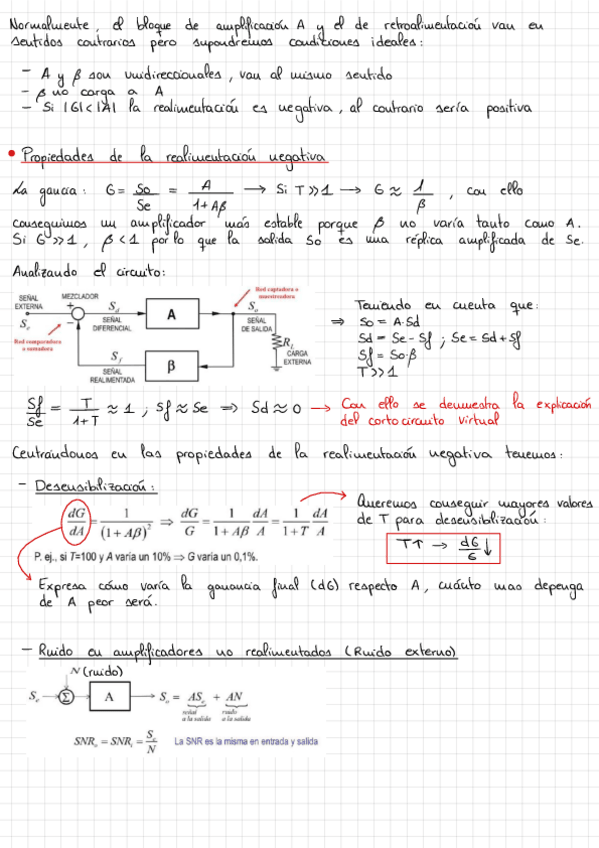 Normalmente, el bloque de amplificación A y el de retroalimentación van en
sentidos contrarios pero supondremos condiciones ideales:
- A y β son unidireccionales, van al mismo sentido
- β no carga a A
- Si |G|<|A| la realimentación es negativa, al contrario sería positiva
• Propiedades de la realimentación negativa
La gancia: G = So/Se = A/(1+Aβ) → Si T≫1 → G ≈ 1/β, con ello
conseguimos un amplificador más estable porque β no varía tanto como A.
Si G≫1, β<1 por lo que la salida So es una réplica amplificada de Se.
Analizando el circuito:
SEÑAL EXTERNA
Se
MEZCLADOR
+
−
Sd
SEÑAL DIFERENCIAL
A
Red captadora o muestreadora
So
SEÑAL DE SALIDA
Red comparadora o sumadora
Sf
SEÑAL REALIMENTADA
β
RL
CARGA EXTERNA
Teniendo en cuenta que:
⇒ So = A·Sd
Sd = Se - Sf ; Se = Sd + Sf
Sf = So·β
T≫1
Sf/Se = T/(1+T) ≈ 1 ; Sf ≈ Se ⇒ Sd ≈ 0 → Con ello se demuestra la explicación
del cortocircuito virtual
Centrándonos en las propiedades de la realimentación negativa tenemos:
- Desensibilización:
dG/dA = 1/(1+Aβ)² ⇒ dG/G = 1/(1+Aβ) dA/A = 1/(1+T) dA/A
Queremos conseguir mayores valores
de T para desensibilización:
T↑ → dG/G ↓
P. ej., si T=100 y A varía un 10% ⇒ G varía un 0,1%.
Expresa cómo varía la ganancia final (dG) respecto A, cuánto mas dependa
de A peor será.
- Ruido en amplificadores no realimentados (Ruido externo)
N (ruido)
Se → Σ → A → So = ASe + AN
señal a la salida
ruido a la salida
SNRo = SNRi = Se/N
La SNR es la misma en entrada y salida